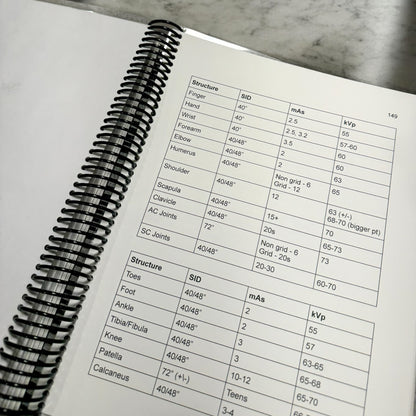 149
Structure SID mAs kVp
Finger 40" 2.5 55
Hand 40" 2.5, 3.2 57-60
Wrist 40" 3.5 60
Forearm 40/48" 2 60
Elbow 40/48" 2 63
Humerus 40/48" Non grid - 6 65
Grid - 12
Shoulder 40/48" 12 63 (+/-)
68-70 (bigger pt)
Scapula 40/48" 15+ 70
Clavicle 40/48" 20s 65-73
AC Joints 72" Non grid - 6 73
Grid - 20s
SC Joints 40/48" 20-30 60-70
Structure SID mAs kVp
Toes 40/48" 2 55
Foot 40/48" 2 57
Ankle 40/48" 3 63-65
Tibia/Fibula 40/48" 3 65-68
Knee 40/48" 10-12 65-70
Patella 72" (+\-) Teens
Calcaneus 40/48" 3-4